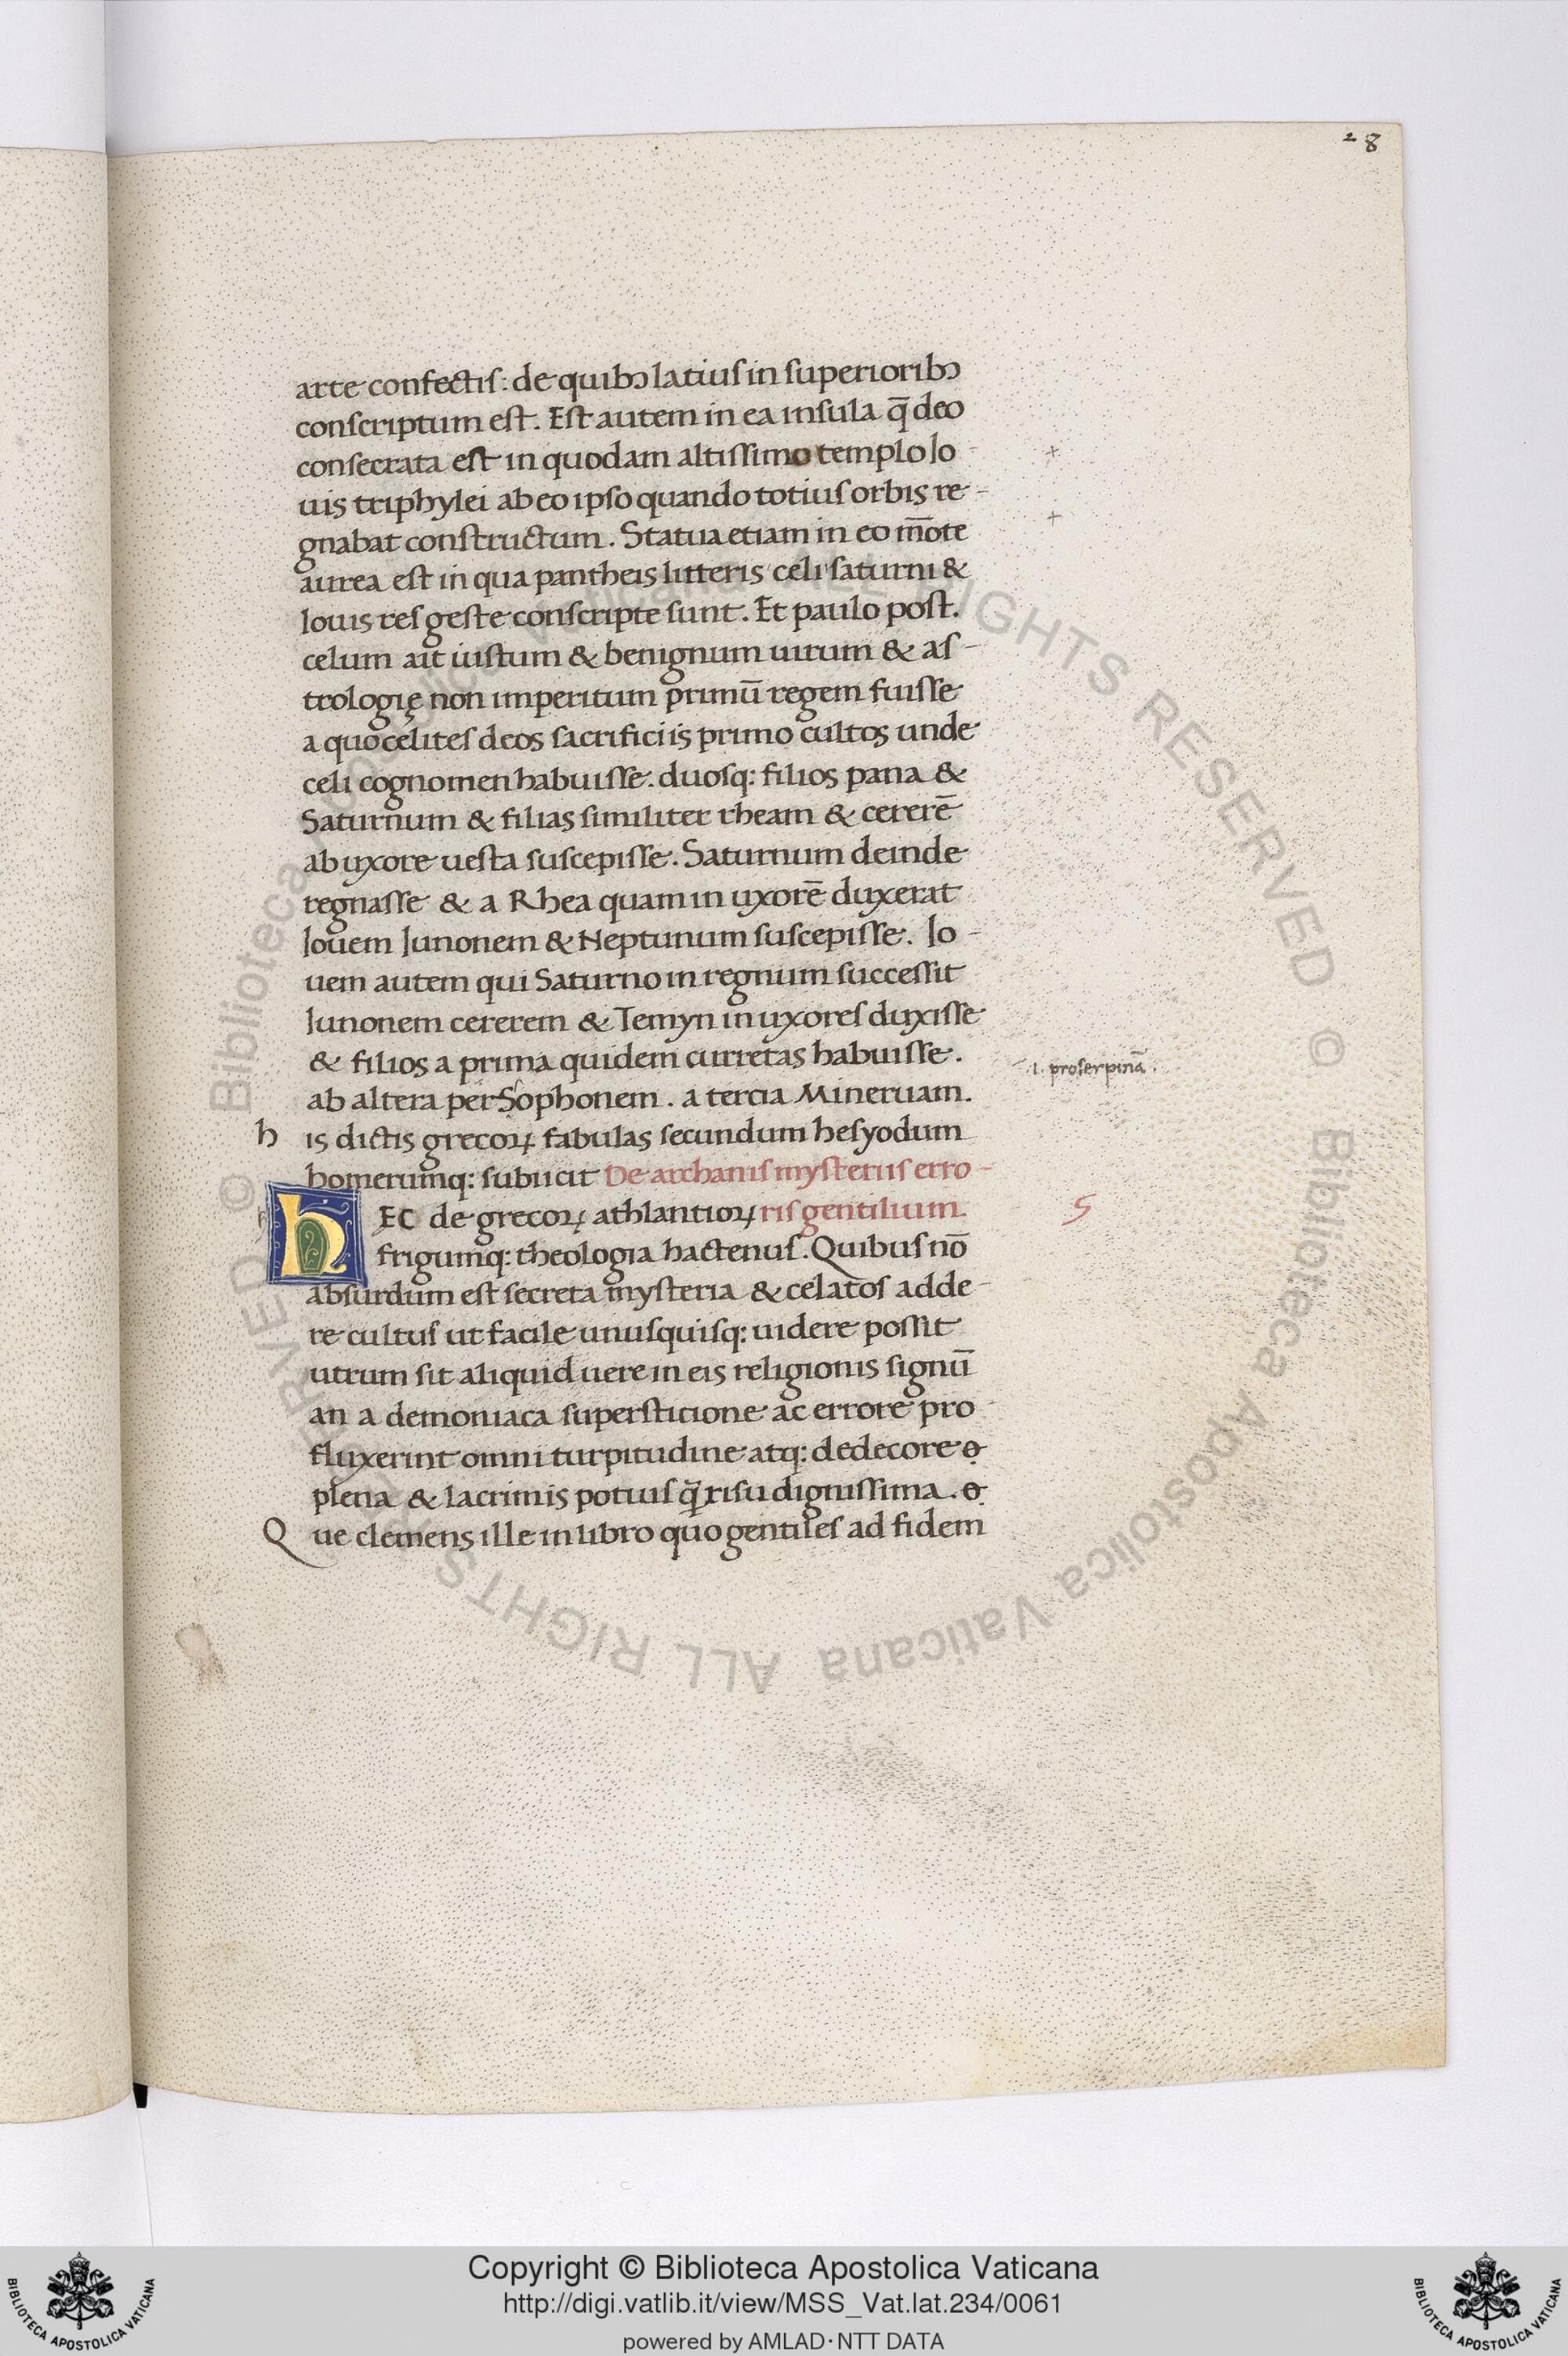 28
arte confectis: de quibꝯ latius in superioribꝯ
conscriptum est. Est autem in ea insula q̄ deo
consecrata est in quodam altissimo templo Io-
uis triphylei ab eo ipso quando totius orbis re-
gnabat constructum. Statua etiam in eo m̄ote
aurea est in qua pantheis litteris celi saturni &
Iouis res geste conscripte sunt. Et paulo post.
celum ait iustum & benignum uirum & as-
trologię non imperitum primū regem fuisse
a quo celites deos sacrificiis primo cultos unde
celi cognomen habuisse. duosq: filios pana &
Saturnum & filias similiter rheam & cererē
ab uxore uesta suscepisse. Saturnum deinde
regnasse & a Rhea quam in uxorē duxerat
Iouem Iunonem & Neptunum suscepisse. Io-
uem autem qui Saturno in regnum successit
Iunonem cererem & Temyn in uxores duxisse
& filios a prima quidem curretas habuisse.
ab altera perSophonem. a tercia Mineruam.
.i. proserpinā.
his dictis grecoꝝ fabulas secundum hesyodum
homerumq: subiicit De archanis mysteriis erro-
hEC de grecoꝝ athlantioꝝ ris gentilium.
frigumq: theologia hactenus. Quibus nō
absurdum est secreta mysteria & celatos adde-
re cultus ut facile unusquisq: uidere possit
utrum sit aliquid uere in eis religionis signū
an a demoniaca supersticione ac errore pro
fluxerint omni turpitudine atq: dedecore
plena & lacrimis potius q̄ risu dignissima.
Que clemens ille in libro quo gentiles ad fidem
Copyright © Biblioteca Apostolica Vaticana
http://digi.vatlib.it/view/MSS_Vat.lat.234/0061
powered by AMLAD·NTT DATA
BIBLIOTECA APOSTOLICA VATICANA
BIBLIOTECA APOSTOLICA VATICANA
© Biblioteca Apostolica Vaticana ALL RIGHTS RESERVED © Biblioteca Apostolica Vaticana ALL RIGHTS RESERVED